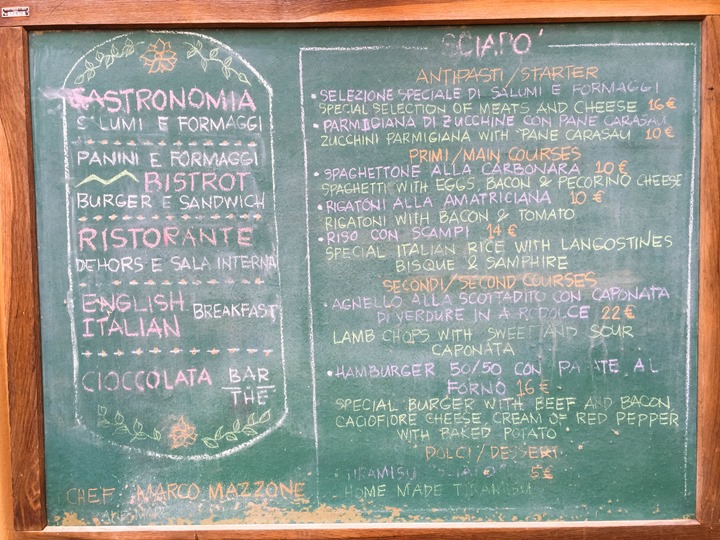 GASTRONOMIA
SALUMI E FORMAGGI
PANINI E FORMAGGI
BISTROT
BURGER E SANDWICH
RISTORANTE
DEHORS E SALA INTERNA
ENGLISH
ITALIAN
BREAKFAST
CIOCCOLATA
BAR
THÈ
CHEF MARCO MAZZONE
SCIAPO'
ANTIPASTI/STARTER
• SELEZIONE SPECIALE DI SALUMI E FORMAGGI
SPECIAL SELECTION OF MEATS AND CHEESE 16 €
• PARMIGIANA DI ZUCCHINE CON PANE CARASAU
ZUCCHINI PARMIGIANA WITH PANE CARASAU 10 €
PRIMI/MAIN COURSES
• SPAGHETTONE ALLA CARBONARA 10 €
SPAGHETTI WITH EGGS, BACON & PECORINO CHEESE
• RIGATONI ALLA AMATRICIANA 10 €
RIGATONI WITH BACON & TOMATO
• RISO CON SCAMPI 14 €
SPECIAL ITALIAN RICE WITH LANGOSTINES
BISQUE & SAMPHIRE
SECONDI/SECOND COURSES
• AGNELLO ALLA SCOTTADITO CON CAPONATA
DI VERDURE IN AGRODOLCE 22 €
LAMB CHOPS WITH SWEET AND SOUR
CAPONATA
• HAMBURGER 50/50 CON PATATE AL
FORNO 16 €
SPECIAL BURGER WITH BEEF AND BACON
CACIOFIORE CHEESE, CREAM OF RED PEPPER
WITH BAKED POTATO
DOLCI/DESSERT
TIRAMISU 5 €
HOME MADE TIRAMISU